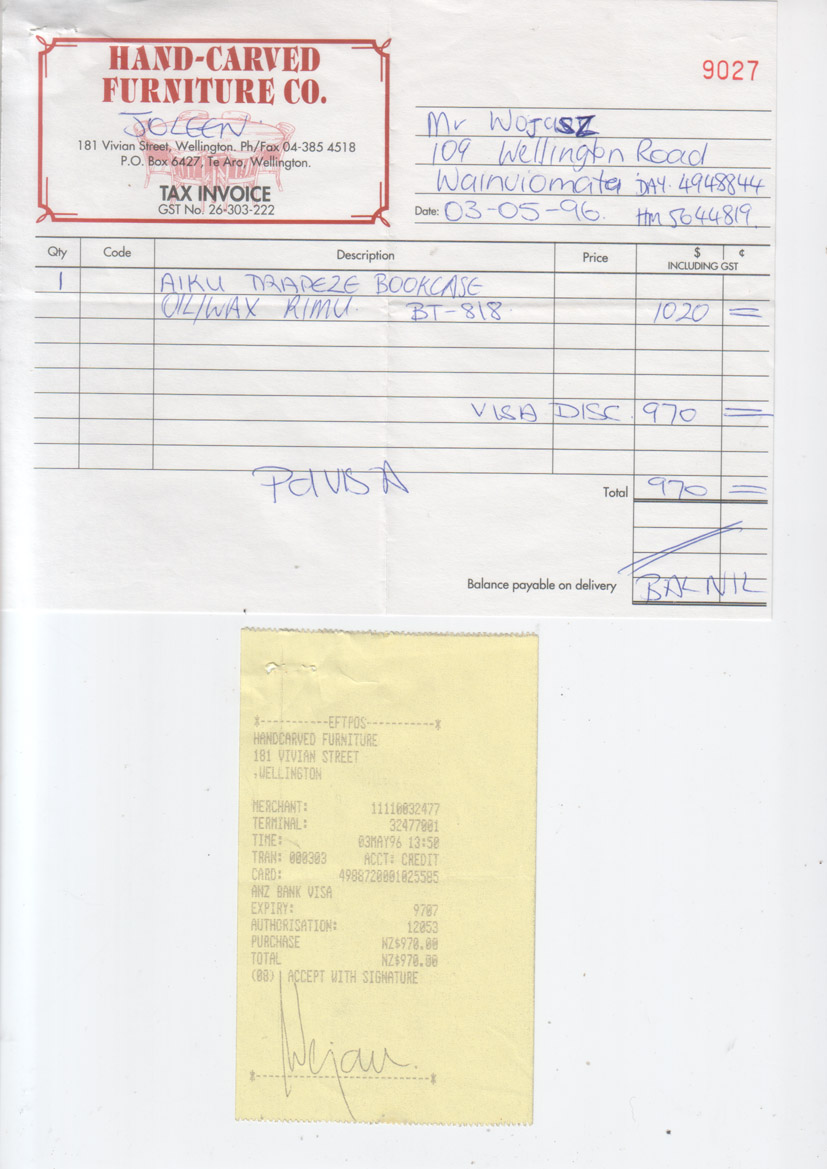 HAND-CARVED
FURNITURE CO.
JOLEEN
181 Vivian Street, Wellington. Ph/Fax 04-385 4518
P.O. Box 6427, Te Aro, Wellington.
TAX INVOICE
GST No. 26-303-222
9027
Mr Wojasz
109 Wellington Road
Wainuiomata DAY. 4948844
Date: 03-05-96. HM 5644819.
Qty Code Description Price $ ¢
INCLUDING GST
1 AIKU TRAPEZE BOOKCASE
OIL/WAX RIMU. BT-818. 1020 =
VISA DISC. 970 =
Pd VISA
Total 970 =
Balance payable on delivery BAL NIL
*----------EFTPOS----------*
HANDCARVED FURNITURE
181 VIVIAN STREET
,WELLINGTON
MERCHANT: 11110032477
TERMINAL: 32477001
TIME: 03MAY96 13:50
TRAN: 000303 ACCT: CREDIT
CARD: 4988720001025585
ANZ BANK VISA
EXPIRY: 9707
AUTHORISATION: 12053
PURCHASE NZ$970.00
TOTAL NZ$970.00
(08) ACCEPT WITH SIGNATURE
*--------------------------*